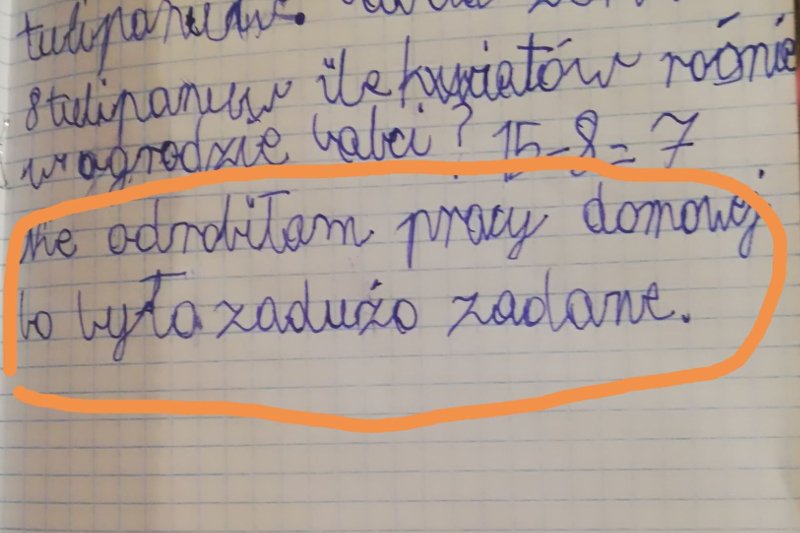 tulipanów.
8 tulipanów ile kwiatów rośnie
w ogrodzie babci? 15-8=7
nie odrobiłam pracy domowej
bo było zadużo zadane.